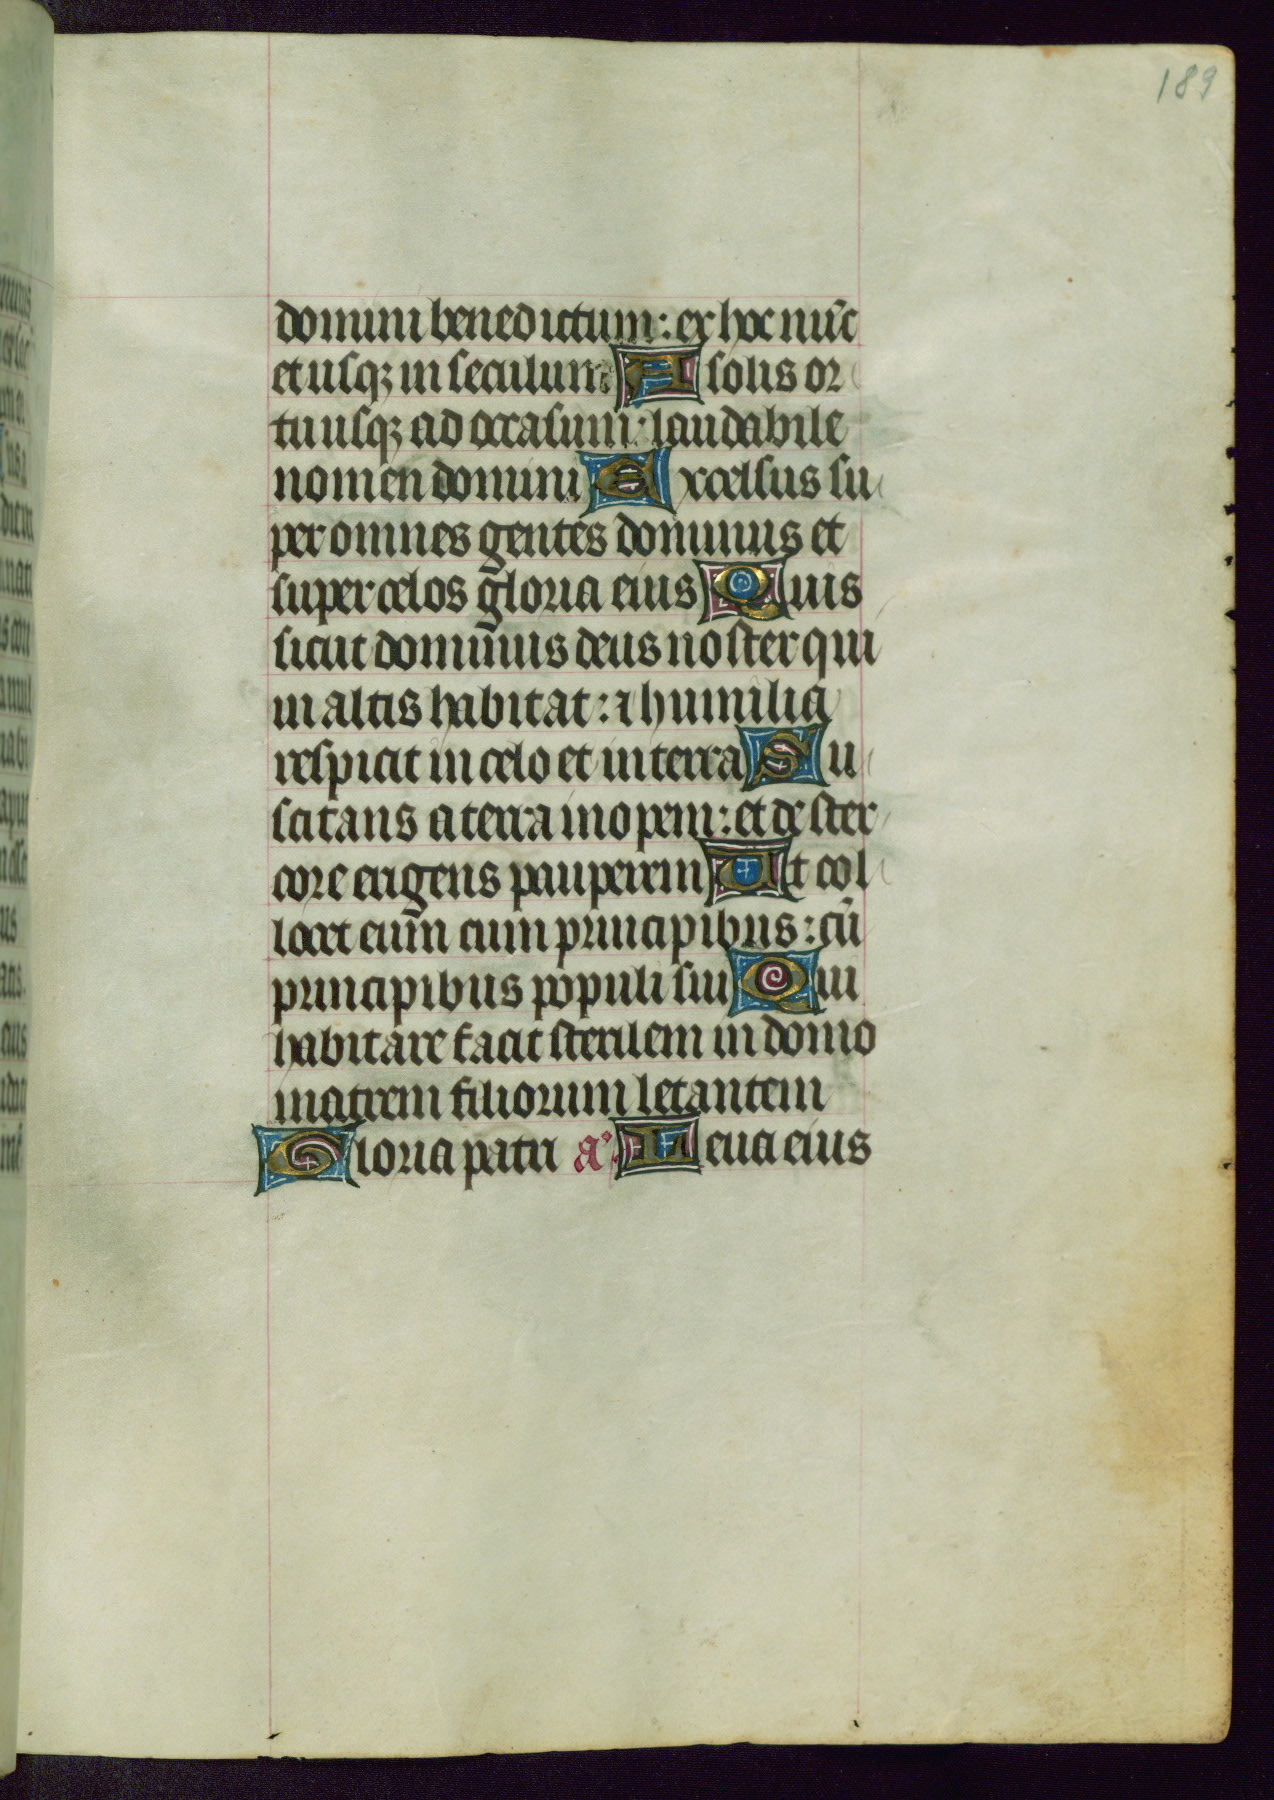 189
domini benedictum: ex hoc nūc
et usqꝫ in seculum A solis or
tu usqꝫ ad occasum: laudabile
nomen domini Excelsus su
per omnes gentes dominus et
super celos gloria eius Quis
sicut dominus deus noster qui
in altis habitat: ⁊ humilia
respicit in celo et in terra Su
scitans a terra inopem: et de ster
core erigens pauperem Ut col
locet eum cum principibus: cū
principibus populi sui Qui
habitare facit sterilem in domo
matrem filiorum letantem
Gloria patri aᵃ. Leua eius